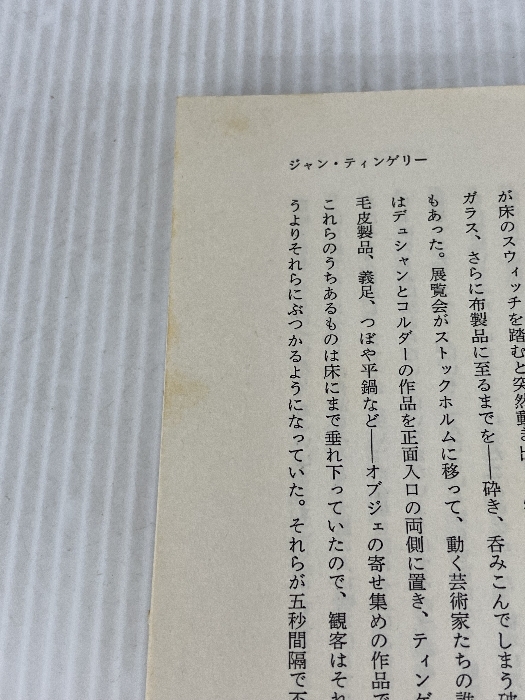 ジャン・ティンゲリー
が床のスウィッチを踏むと突然動き
ガラス、さらに布製品に至るまでを――砕き、呑みこんでしまう破
もあった。展覧会がストックホルムに移って、動く芸術家たちの誰
はデュシャンとコルダーの作品を正面入口の両側に置き、ティンゲ
毛皮製品、義足、つぼや平鍋など――オブジェの寄せ集めの作品で
これらのうちあるものは床にまで垂れ下っていたので、観客はそれ
うよりそれらにぶつかるようになっていた。それらが五秒間隔で不